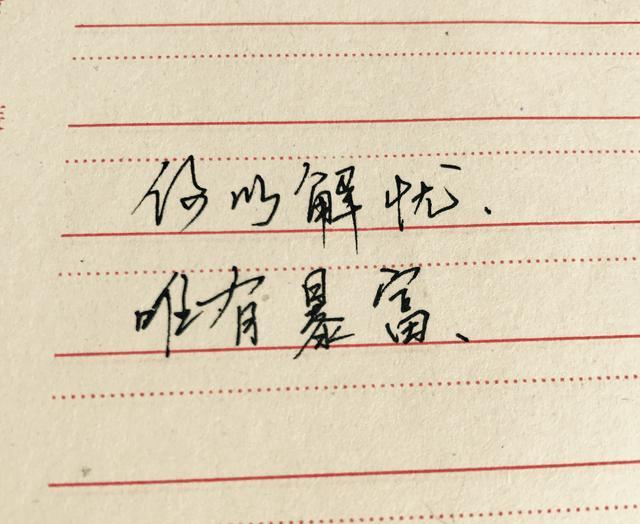 何以解忧.
唯有暴富、